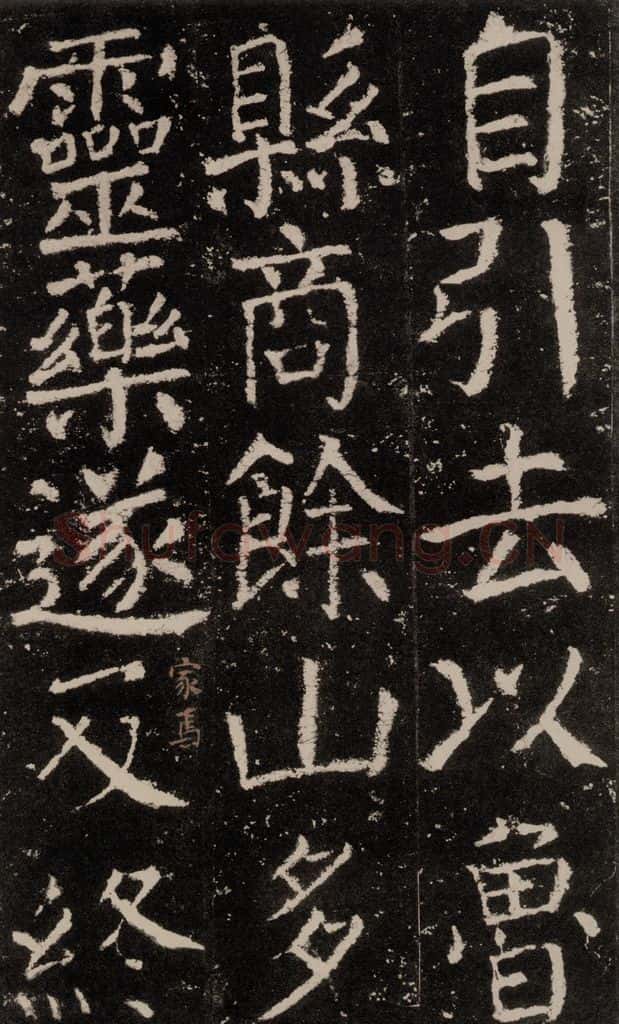 自引去以魯
縣商餘山多
靈藥遂及終
家焉
Shufawang.CN